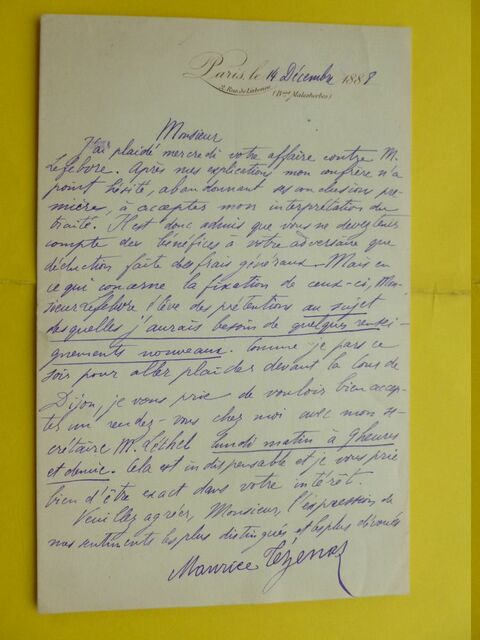 Paris, le 14 Décembre 1888
2, Rue de Lisbonne (Bard Malesherbes)
Monsieur
J'ai plaidé mercredi votre affaire contre M.
Lefebvre. Après mes explications mon confrère n'a
point hésité, abandonnant ses conclusions pre-
mières, à accepter mon interprétation du
traité. Il est donc admis que vous ne devez tenir
compte des bénéfices à votre adversaire que
déduction faite des frais généraux. Mais en
ce qui concerne la fixation de ceux-ci, Mon-
sieur Lefebvre élève des prétentions au sujet
desquelles j'aurais besoin de quelques rensei-
gnements nouveaux. Comme je pars ce
soir pour aller plaider devant la Cour de
Dijon, je vous prie de vouloir bien accep-
ter un rendez-vous chez moi avec mon se-
crétaire M. Léchel lundi matin à 9 heures
et demie. Cela est indispensable et je vous prie
bien d'être exact dans votre intérêt.
Veuillez agréer, Monsieur, l'expression de
mes sentiments les plus distingués et les plus dévoués
Maurice Tézenas